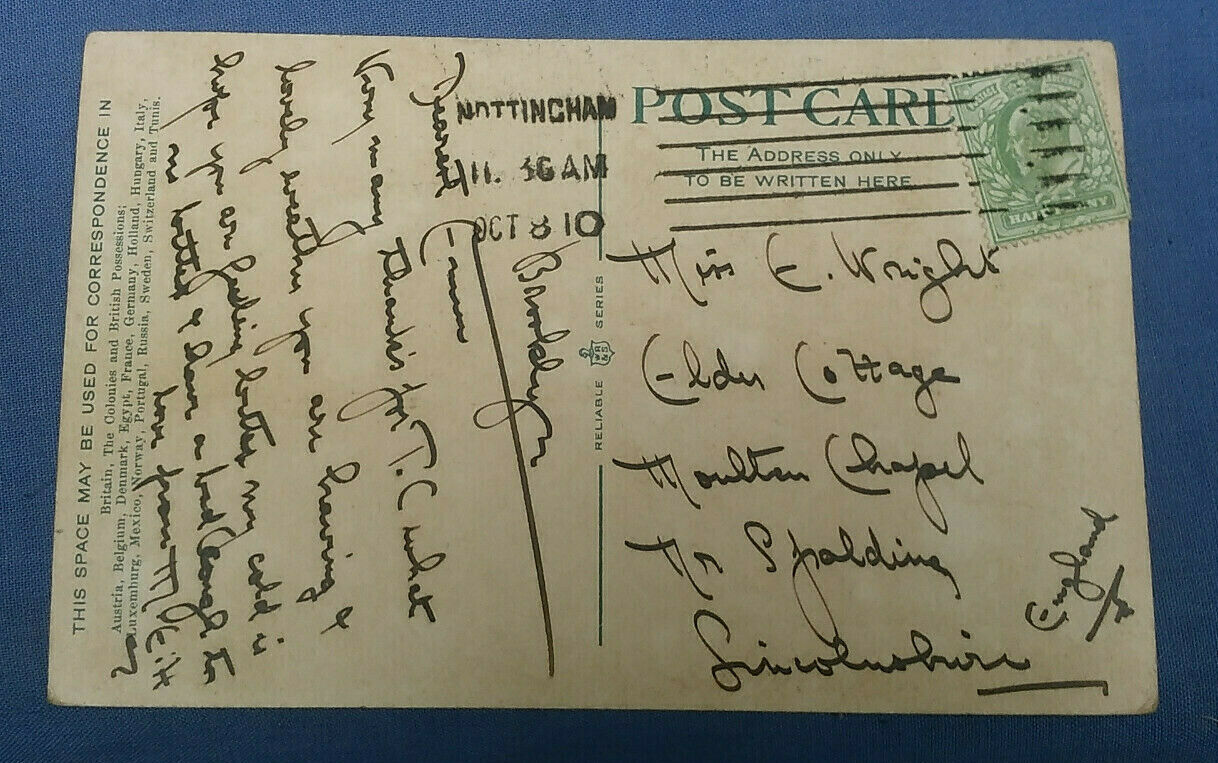 POST CARD
THE ADDRESS ONLY
TO BE WRITTEN HERE
HALFPENNY
NOTTINGHAM
11.30AM
OCT 8 10
Miss E. Wright
Elder Cottage
Moulton Chapel
Nr Spalding
Lincolnshire
England
RELIABLE WR&S SERIES
THIS SPACE MAY BE USED FOR CORRESPONDENCE IN
Britain, The Colonies and British Possessions;
Austria, Belgium, Denmark, Egypt, France, Germany, Holland, Hungary, Italy,
Luxemburg, Mexico, Norway, Portugal, Russia, Sweden, Switzerland and Tunis.
Brooklyn
Dearest Emm
Very many thanks for T. C what
lovely weather you are having &
hope you are feeling better my cold is
no better & have a bad cough to
love from